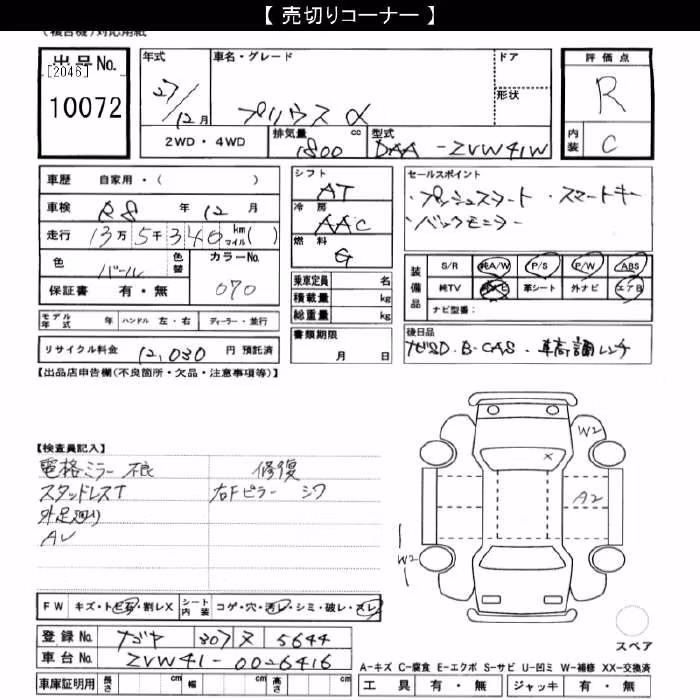 【 売切りコーナー 】
(複合機)対応用紙
出品No. [2046] 10072
年式 27/12月
車名・グレード プリウスα
ドア
形状
2WD・4WD
排気量 1800 cc
型式 DAA-ZVW41W
評価点 R
内装 C
車歴 自家用・( )
車検 R8年 12月
走行 13万5千340 km マイル( )
色 パール 色替
カラーNo. 070
保証書 有・無
モデル年式 年 ハンドル 左・右 ディーラー・並行
リサイクル料金 12,030 円 預託済
シフト AT
冷房 AAC
燃料 G
乗車定員 名
積載量 kg
総重量 kg
書類期限 月 日
セールスポイント
・プッシュスタート ・スマートキー
・バックモニター
装備品 S/R 純A/W P/S P/W ABS
純TV 純ナビ 革シート 外ナビ エアB
ナビ型番:
後日品
ナビSD・B-CAS・車高調レンチ
【出品店申告欄(不良箇所・欠品・注意事項等)】
【検査員記入】
電格ミラー不良 修復
スタッドレスT 右Fピラー シワ
外足廻り
AV
W2
×
A2
W2
FW キズ・トビ石・割レX シート内装 コゲ・穴・汚レ・シミ・破レ・スレ
登録No. ナゴヤ 307 ヌ 5644
車台No. ZVW41-0026416
車庫証明用 長さ cm 幅 cm 高さ cm
スペア
A-キズ C-腐食 E-エクボ S-サビ U-凹ミ W-補修 XX-交換済
工具 有・無 ジャッキ 有・無